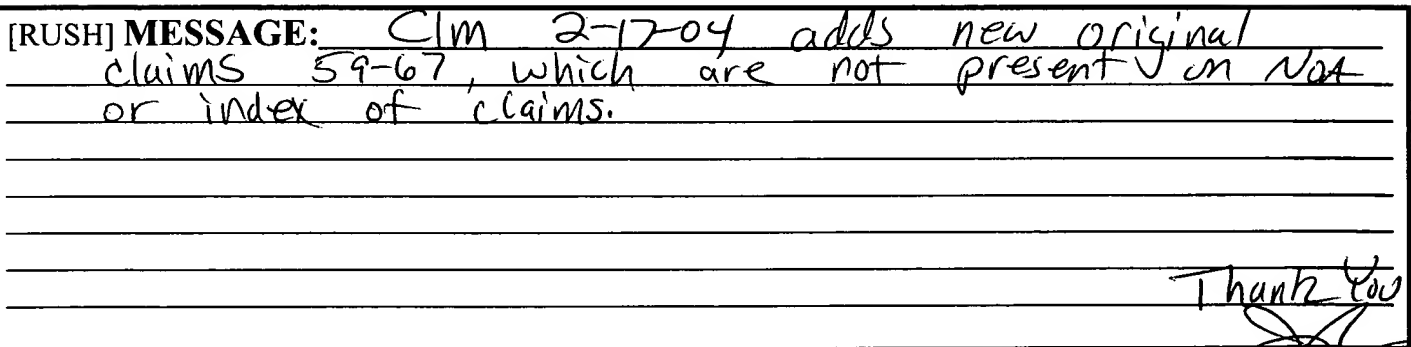 [RUSH] MESSAGE: Clm 2-17-04 adds new original
claims 59-67, which are not present on NOA
or index of claims.
Thank You